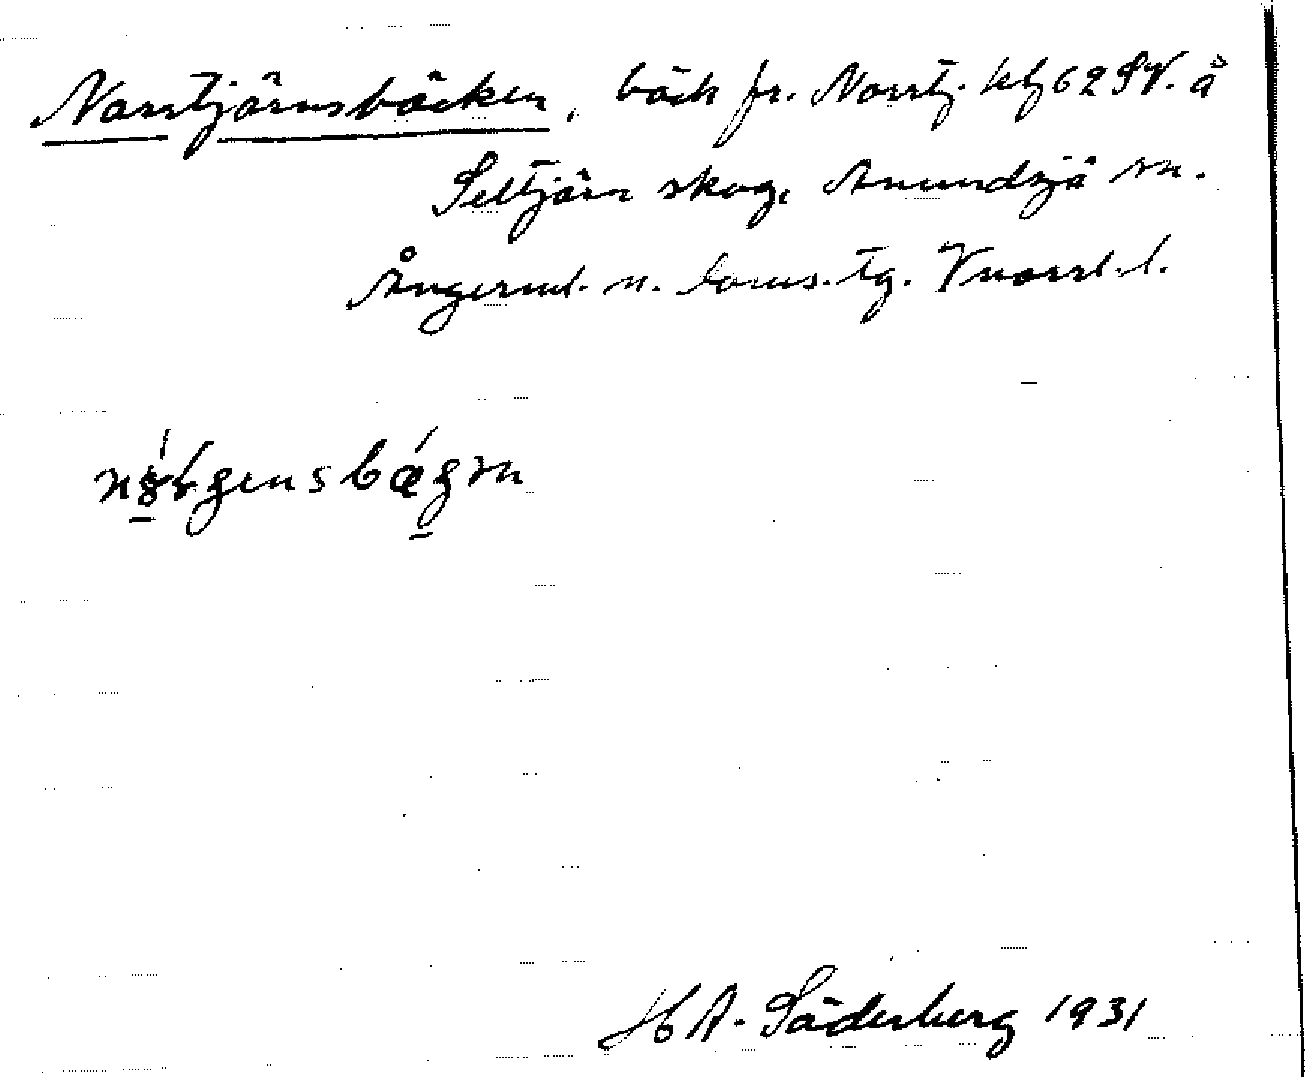 Norrtjärnsbäcken, bäck fr. Norrtj. kbl 62 SV. å
Seltjärn skog, Anundsjö sn.
Ångerml. n. doms. tg. Vnorrl. l.
H A. Söderberg 1931